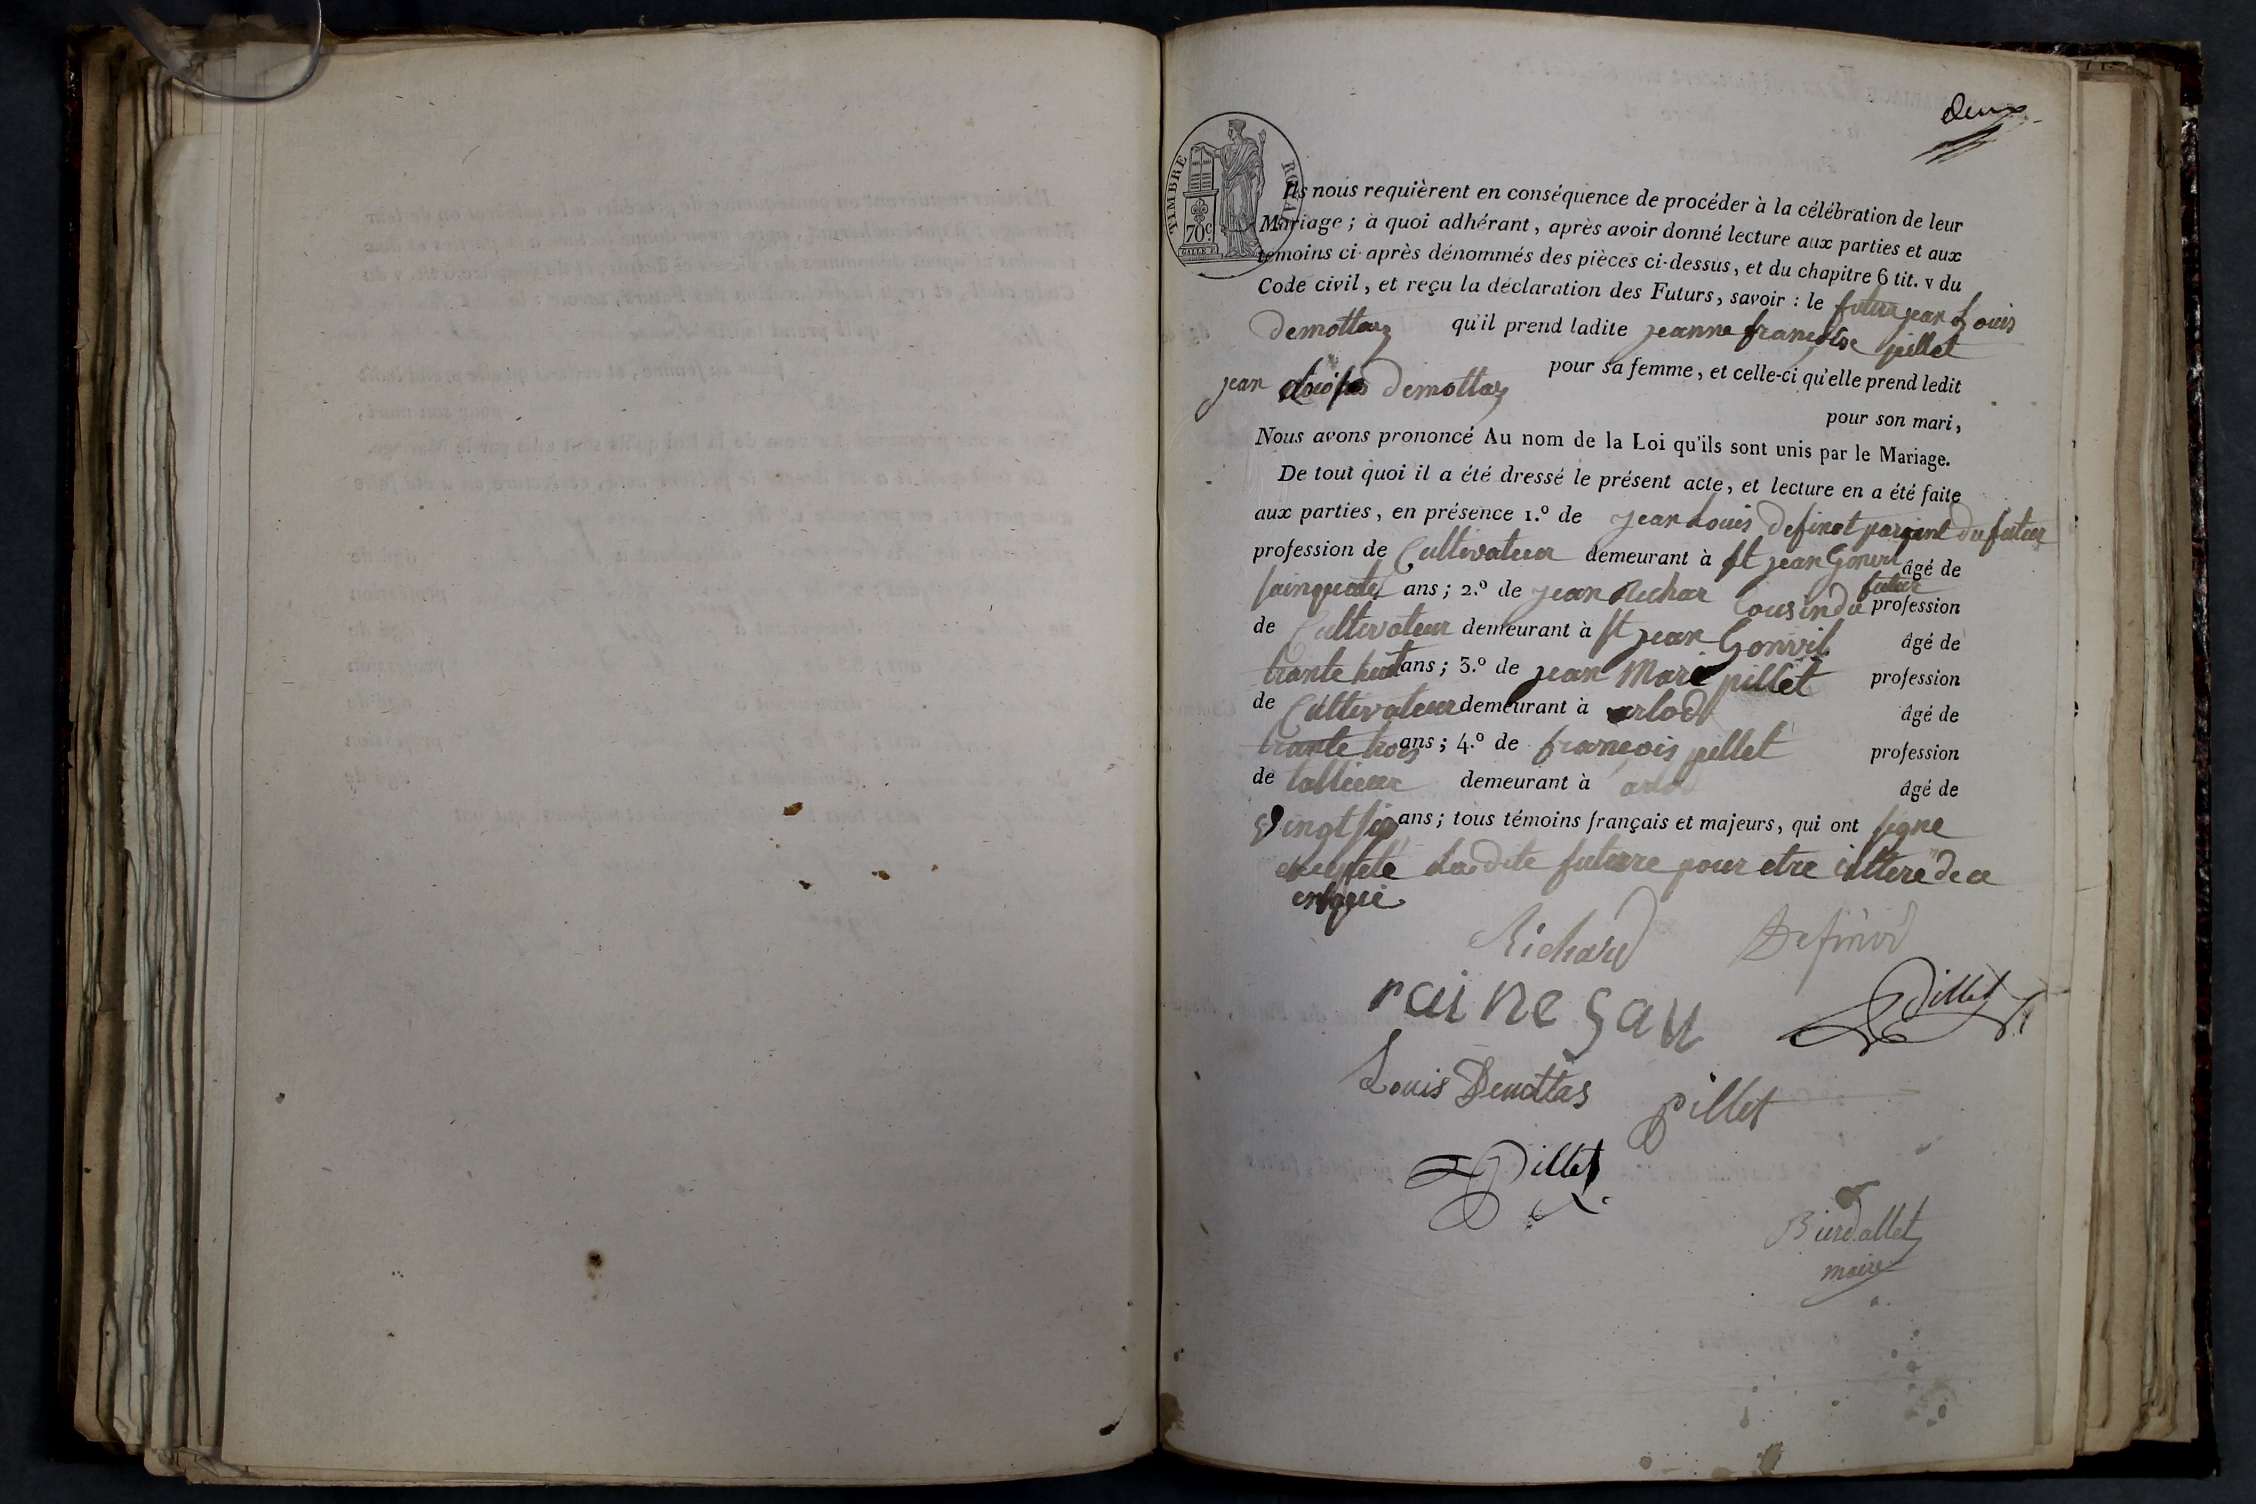 deux
TIMBRE ROYAL
70c
Ils nous requièrent en conséquence de procéder à la célébration de leur
Mariage ; à quoi adhérant, après avoir donné lecture aux parties et aux
témoins ci-après dénommés des pièces ci-dessus, et du chapitre 6 tit. v du
Code civil, et reçu la déclaration des Futurs, savoir : le futur jean Louis
demottaz qu'il prend ladite jeanne françoise pillet
pour sa femme, et celle-ci qu'elle prend ledit
jean demottaz
pour son mari,
Nous avons prononcé Au nom de la Loi qu'ils sont unis par le Mariage.
De tout quoi il a été dressé le présent acte, et lecture en a été faite
aux parties, en présence 1.º de jean Louis definot parent du futur
profession de Cultivateur demeurant à st jean Gonvil âgé de
sainquate ans ; 2.º de jean Richar Cousin du futur profession
de Cultivateur demeurant à st jean Gonvil âgé de
trante huit ans ; 3.º de jean Marie pillet profession
de Cultivateur demeurant à arlod âgé de
trante trois ans ; 4.º de francois pillet profession
de tallieur demeurant à arlod âgé de
Vingt six ans ; tous témoins français et majeurs, qui ont signe
excepté Ladite futurre pour etre illtere de ce
enquis
Richard Definod
raine gay Pillet
Louis Demottas Pillet
Pillet
Burdallet
maire